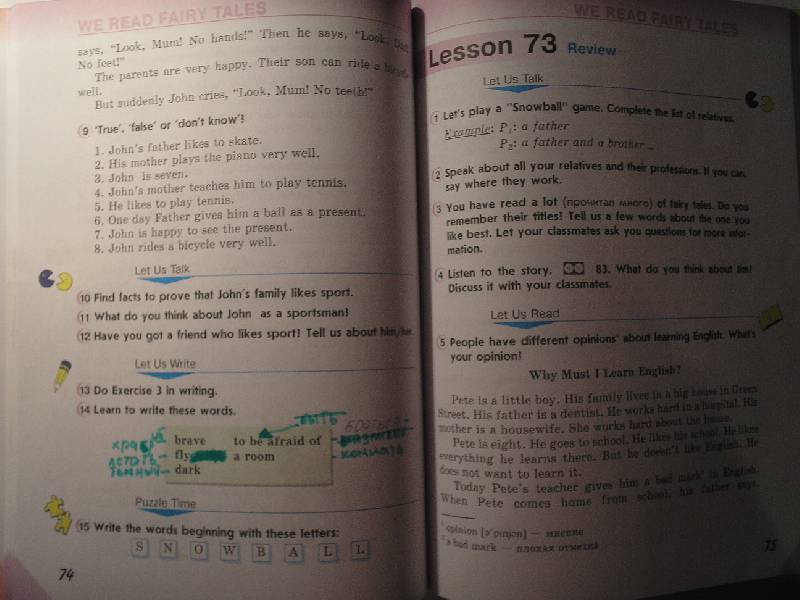 WE READ FAIRY TALES
says, "Look, Mum! No hands!" Then he says, "Look, Dad!
No feet!"
The parents are very happy. Their son can ride a bicycle
well.
But suddenly John cries, "Look, Mum! No teeth!"
9 'True', 'false' or 'don't know'?
1. John's father likes to skate.
2. His mother plays the piano very well.
3. John is seven.
4. John's mother teaches him to play tennis.
5. He likes to play tennis.
6. One day Father gives him a ball as a present.
7. John is happy to see the present.
8. John rides a bicycle very well.
Let Us Talk
10 Find facts to prove that John's family likes sport.
11 What do you think about John as a sportsman?
12 Have you got a friend who likes sport? Tell us about him/her.
Let Us Write
13 Do Exercise 3 in writing.
14 Learn to write these words.
быть
brave to be afraid of
fly a room
комната
dark
темный
Puzzle Time
15 Write the words beginning with these letters:
S N O W B A L L
74
WE READ FAIRY TALES
Lesson 73 Review
Let Us Talk
1 Let's play a "Snowball" game. Complete the list of relatives.
Example: P1: a father
P2: a father and a brother ...
2 Speak about all your relatives and their professions. If you can,
say where they work.
3 You have read a lot (прочитал много) of fairy tales. Do you
remember their titles? Tell us a few words about the one you
like best. Let your classmates ask you questions for more infor-
mation.
4 Listen to the story, 83. What do you think about Jim?
Discuss it with your classmates.
Let Us Read
5 People have different opinions¹ about learning English. What's
your opinion?
Why Must I Learn English?
Pete is a little boy. His family lives in a big house in Green
Street. His father is a dentist. He works hard in a hospital. His
mother is a housewife. She works hard about the house.
Pete is eight. He goes to school. He likes his school. He likes
everything he learns there. But he doesn't like English. He
does not want to learn it.
Today Pete's teacher gives him a bad mark² in English.
When Pete comes home from school, his father says,
¹ opinion [ə'pɪnjən] — мнение
² a bad mark — плохая отметка
75